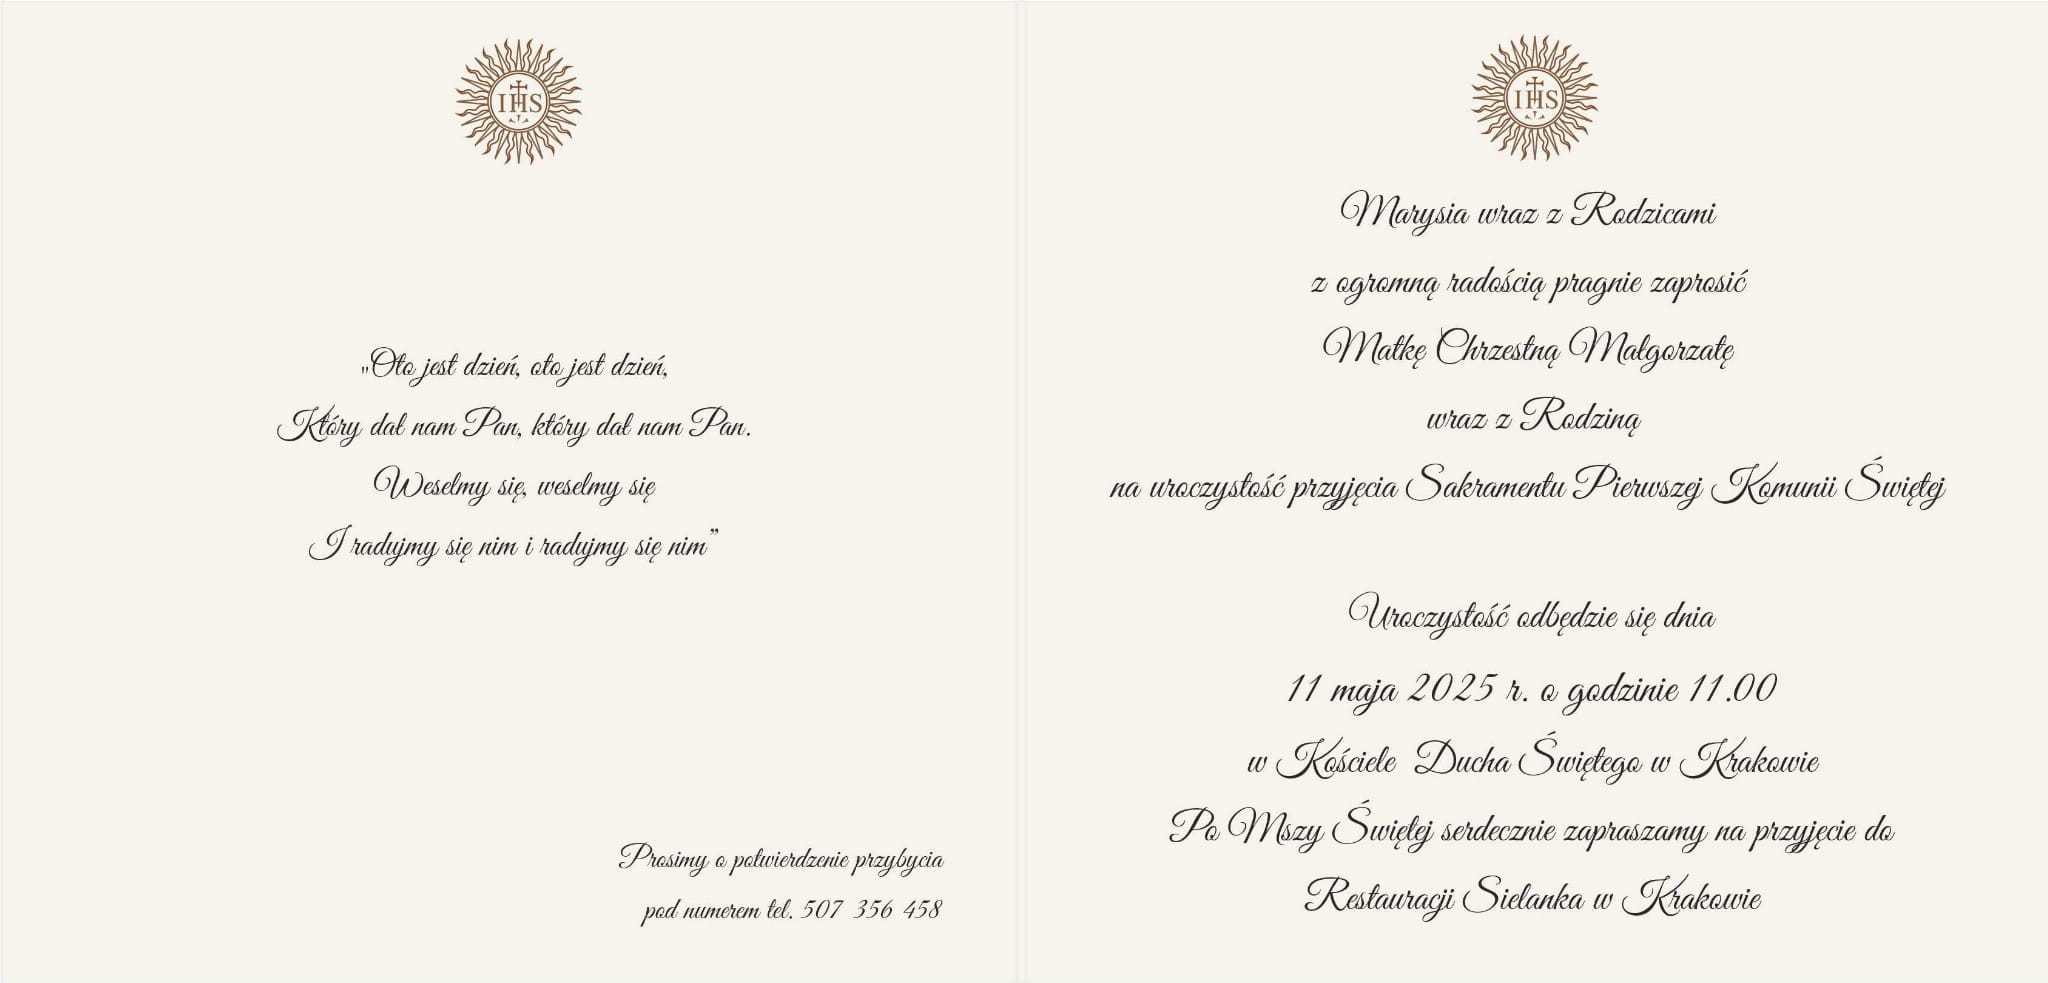 IHS
„Oto jest dzień, oto jest dzień,
Który dał nam Pan, który dał nam Pan.
Weselmy się, weselmy się
I radujmy się nim i radujmy się nim”
Prosimy o potwierdzenie przybycia
pod numerem tel. 507 356 458
IHS
Marysia wraz z Rodzicami
z ogromną radością pragnie zaprosić
Matkę Chrzestną Małgorzatę
wraz z Rodziną
na uroczystość przyjęcia Sakramentu Pierwszej Komunii Świętej
Uroczystość odbędzie się dnia
11 maja 2025 r. o godzinie 11.00
w Kościele Ducha Świętego w Krakowie
Po Mszy Świętej serdecznie zapraszamy na przyjęcie do
Restauracji Sielanka w Krakowie